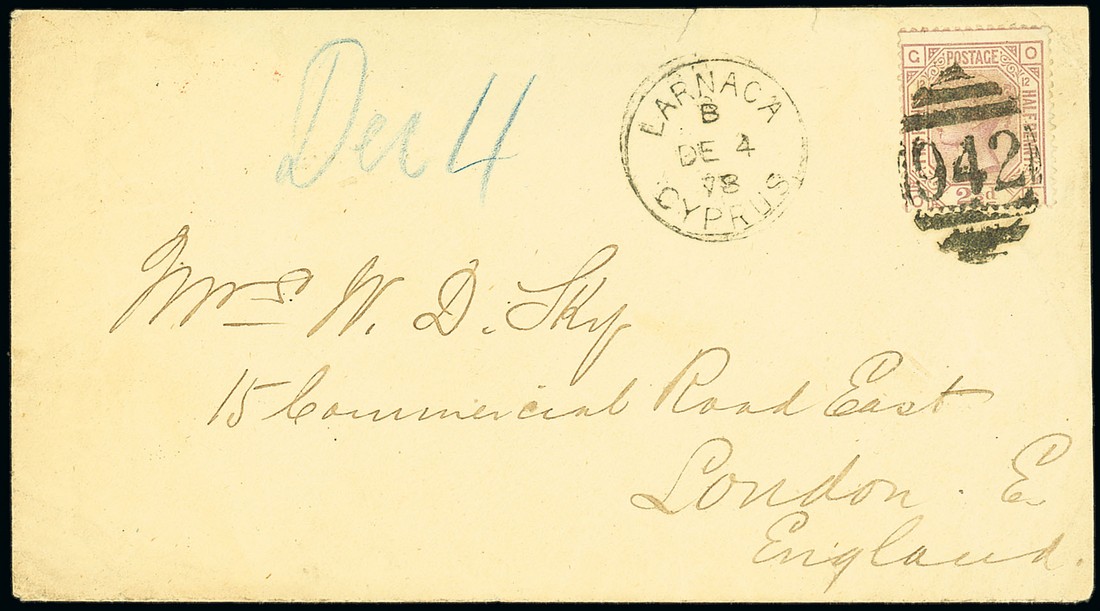 Dec 4
LARNACA
B
DE 4
78
CYPRUS
G POSTAGE O
12 12
HALF
2½d
942
Mrs W. D. Sky
15 Commercial Road East
London. E
England.